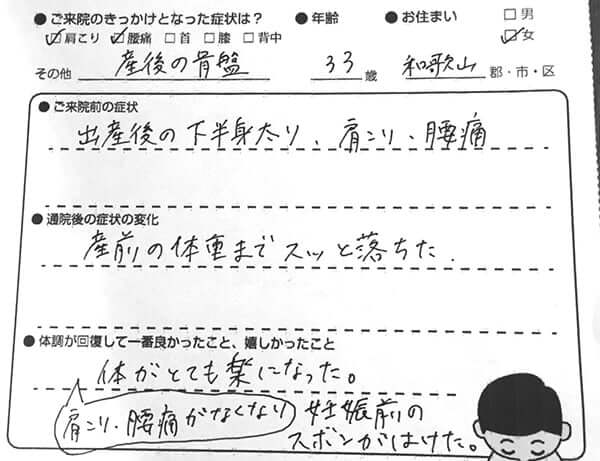 ● ご来院のきっかけとなった症状は? ● 年齢 ● お住まい □ 男
☑ 肩こり ☑ 腰痛 □ 首 □ 膝 □ 背中 ☑ 女
その他 産後の骨盤 33 歳 和歌山 郡・市・区
● ご来院前の症状
出産後の下半身太り、肩こり、腰痛
● 通院後の症状の変化
産前の体重までスッと落ちた.
● 体調が回復して一番良かったこと、嬉しかったこと
体がとても楽になった。
肩こり、腰痛がなくなり 妊娠前の
ズボンがはけた。